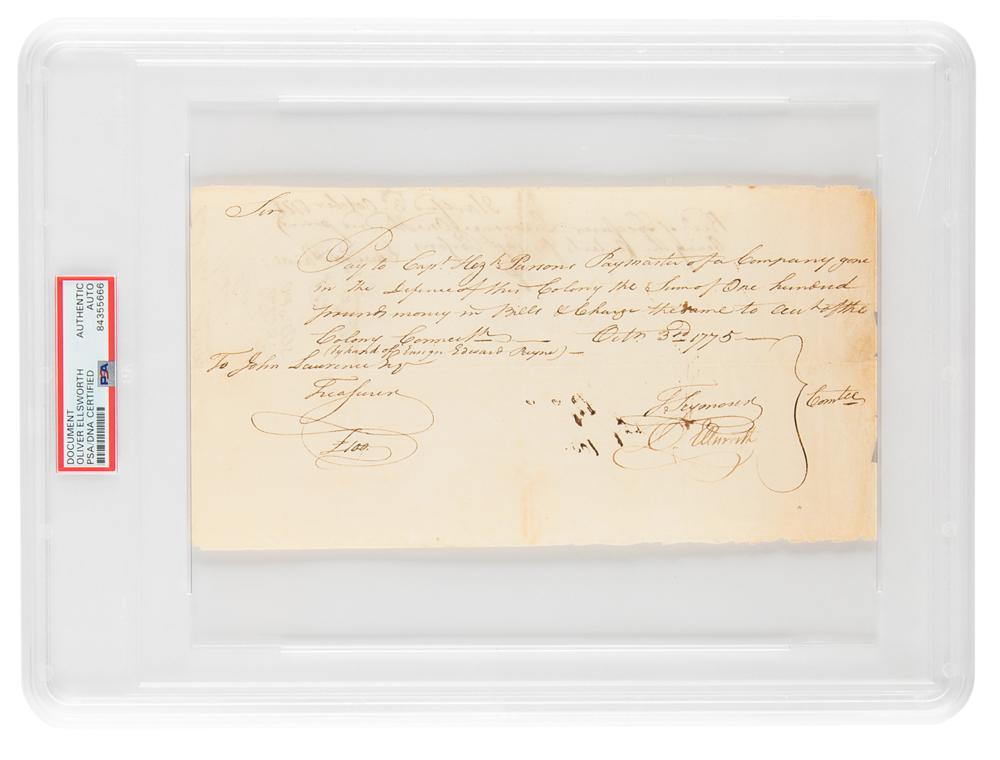 DOCUMENT
OLIVER ELLSWORTH
PSA/DNA CERTIFIED
AUTHENTIC
AUTO
84355666
PSA
Sir
Pay to Capt. Hezh. Parsons Paymaster of a Company gone
in the Defence of this Colony the Sum of One hundred
pounds money in Bills & Charge the same to acct. of the
Colony Connectt. Octr. 3rd. 1775
(by hand of Ensign Edward Payne)
To John Lawrence Esqr
Treasurer
£100.
T. Seymour
O. Ellsworth
Comtee